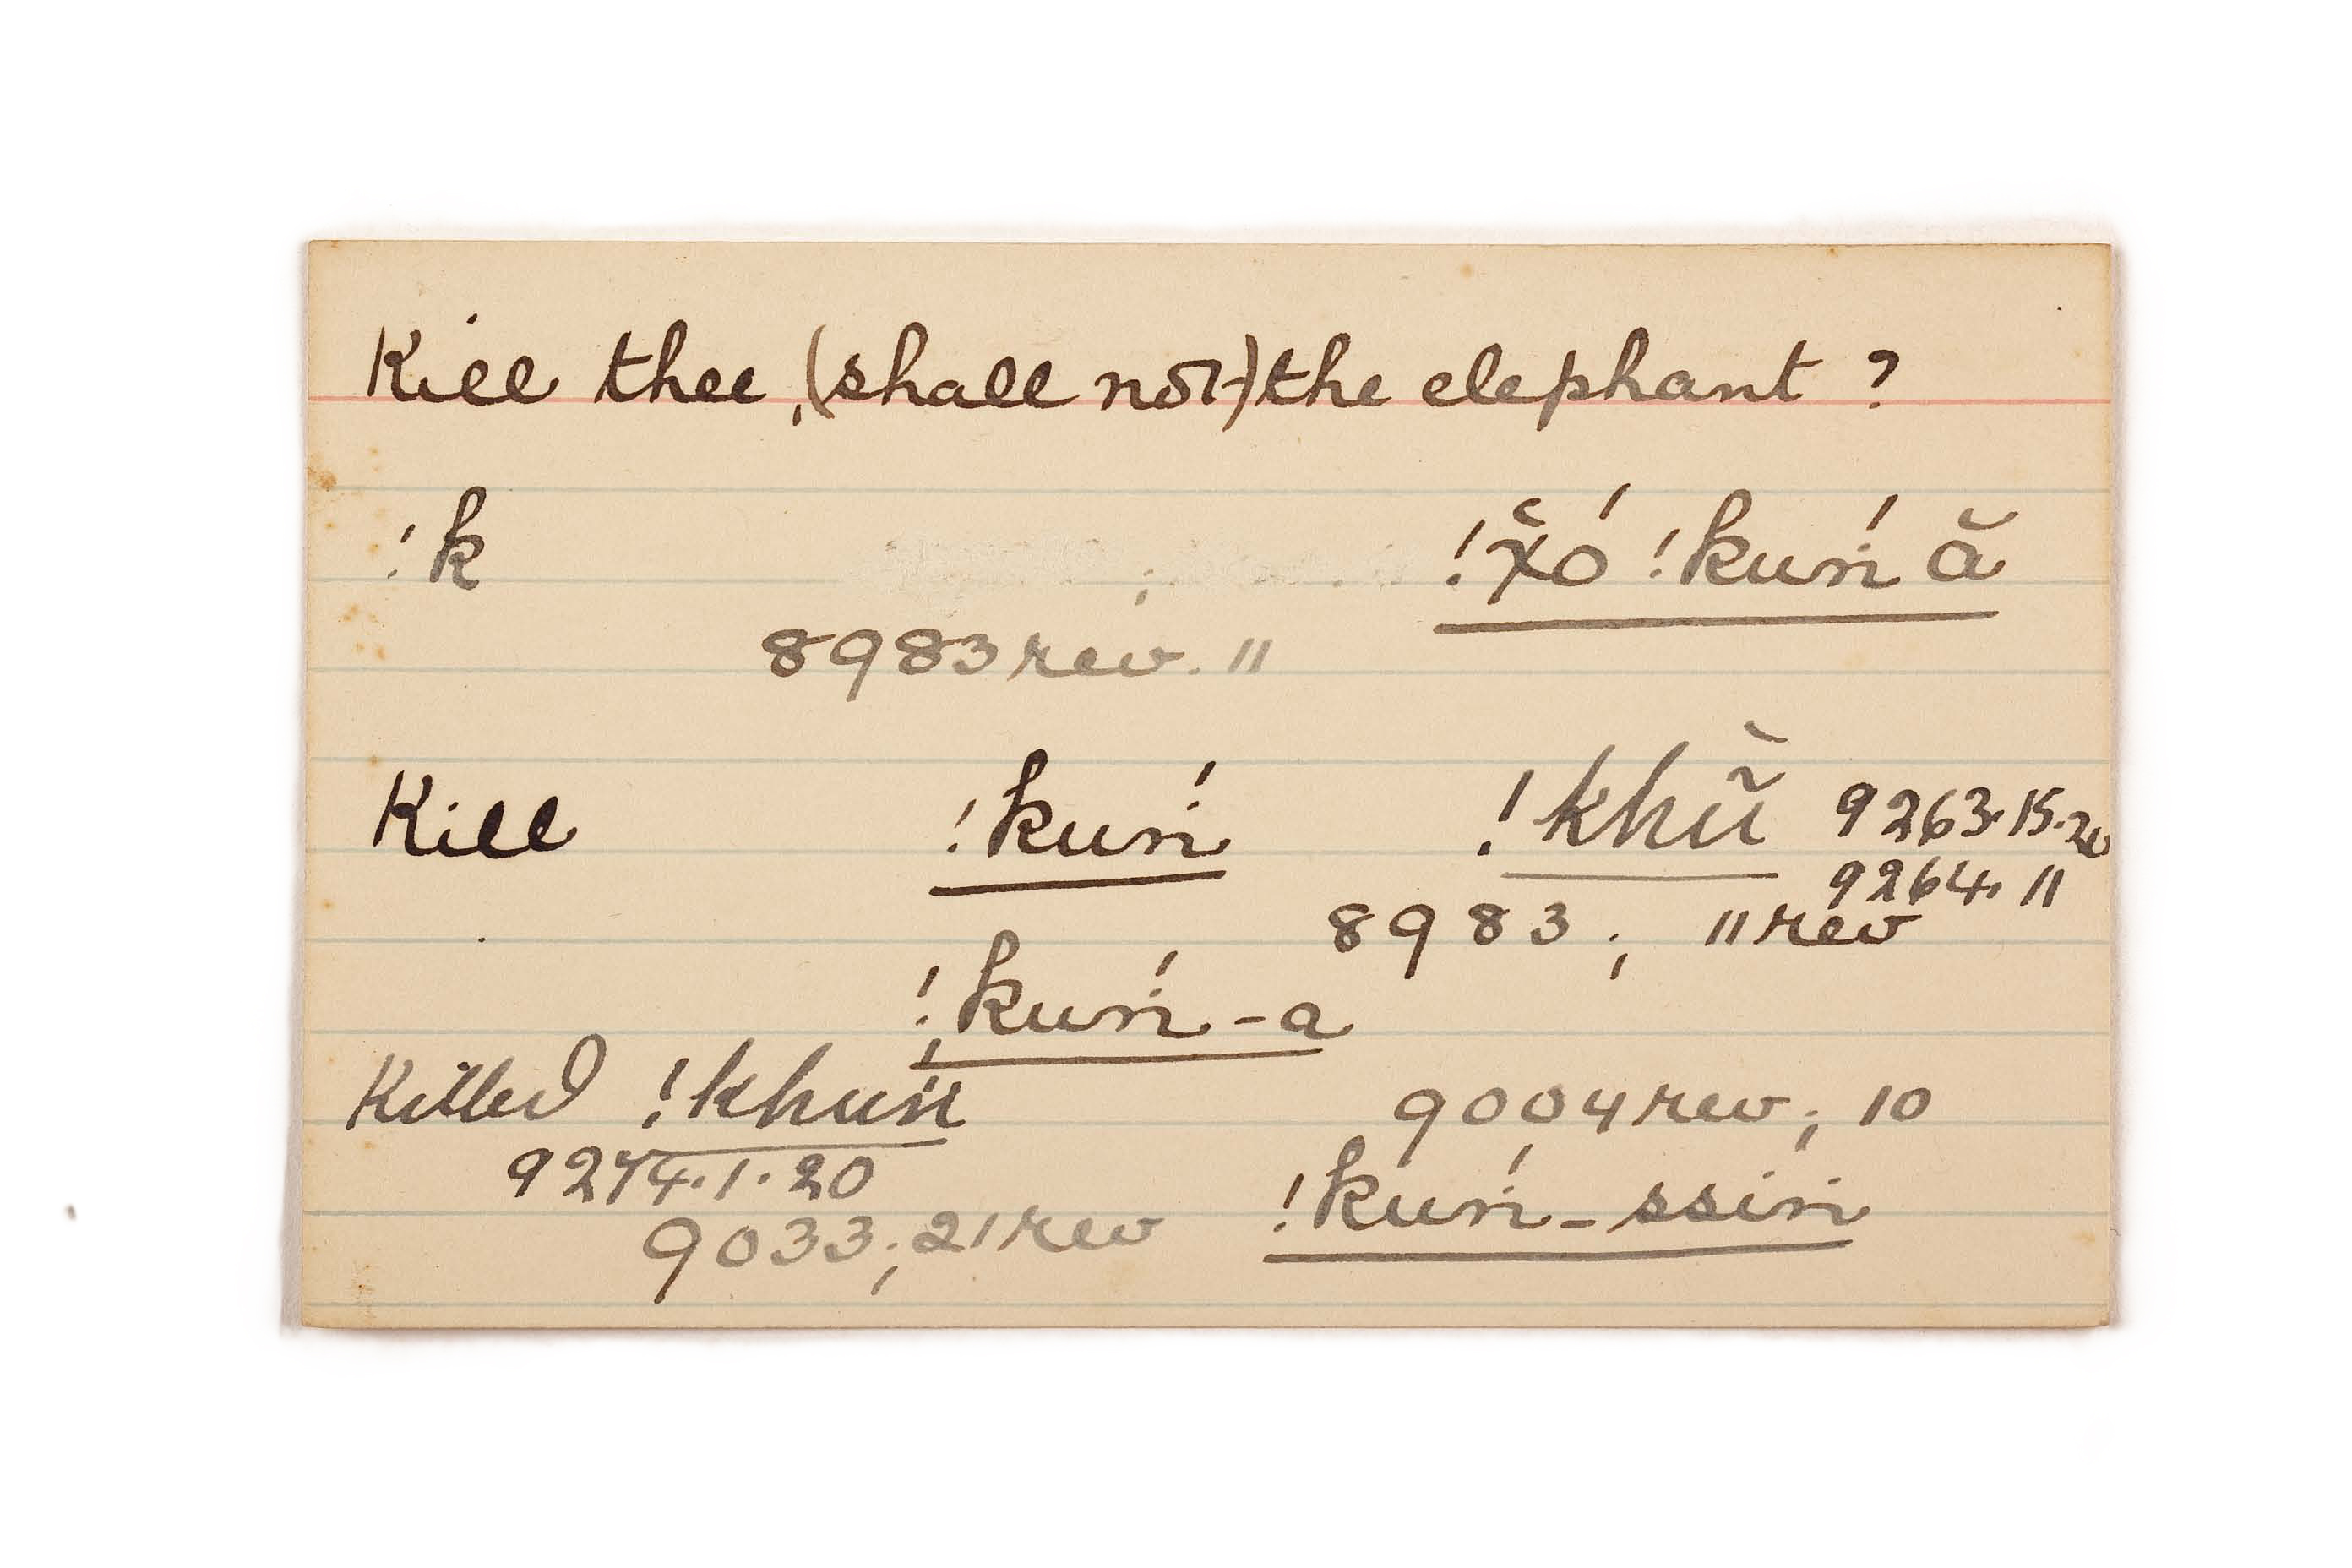 Kill thee, (shall not) the elephant?
!k ; !χ̆ó !kuṅ́ ă
8983 rev. 11
Kill !kuṅ́ !khŭ̃ 9263.15.20
9264. 11
8983; 11 rev
!kuṅ́-a
Killed !khuṅ 9004 rev; 10
9274.1.20 !kuṅ́-ssiṅ
9033; 21 rev